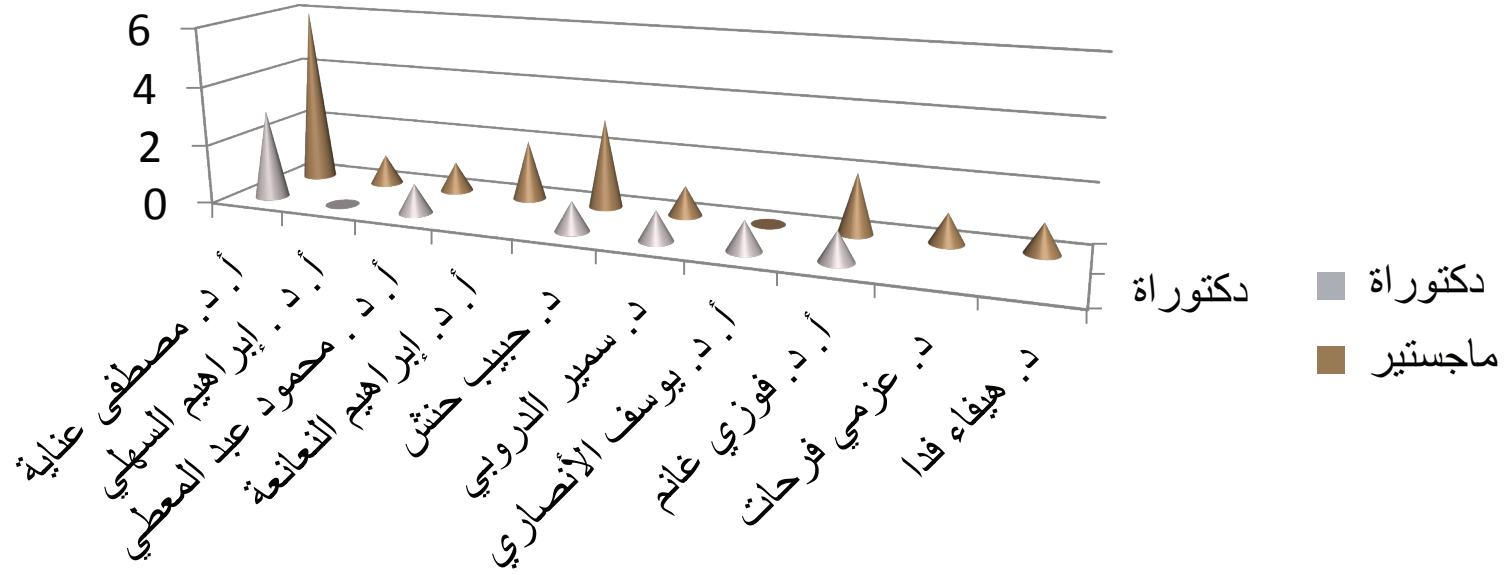 6
4
2
0
أ. د. مصطفى عناية
أ. د. إبراهيم السهلي
أ. د. محمود عبد المعطي
أ. د. إبراهيم النعانعة
د. حبيب حنش
د. سمير الدروبي
أ. د. يوسف الأنصاري
أ. د. فوزي غانم
د. عزمي فرحات
د. هيفاء فدا
دكتوراة
دكتوراة
ماجستير